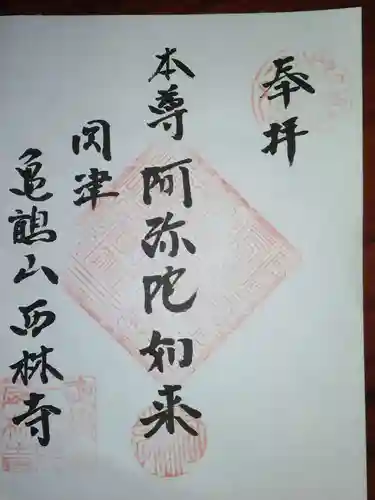 奉拝
本尊 阿弥陀如来
関津
亀鶴山 西林寺